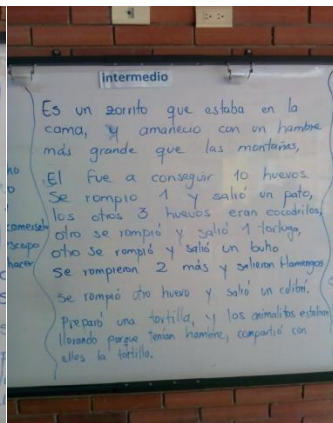 intermedio
Es un zorrito que estaba en la
cama, y amanecio con un hambre
más grande que las montañas,
El fue a conseguir 10 huevos
Se rompio 1 y salió un pato,
los otros 3 huevos eran cocodrilos,
otro se rompió y salió 1 tortuga,
otro se rompió y salió un buho
se rompieron 2 más y salieron flamengos
se rompió otro huevo y salió un colibrí.
Preparó una tortilla, y los animalitos estaban
llorando porque tenían hambre, compartió con
ellos la tortilla.